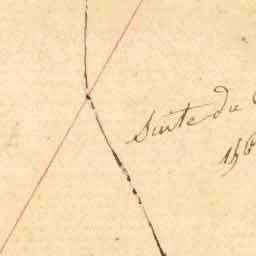 Suite du
156